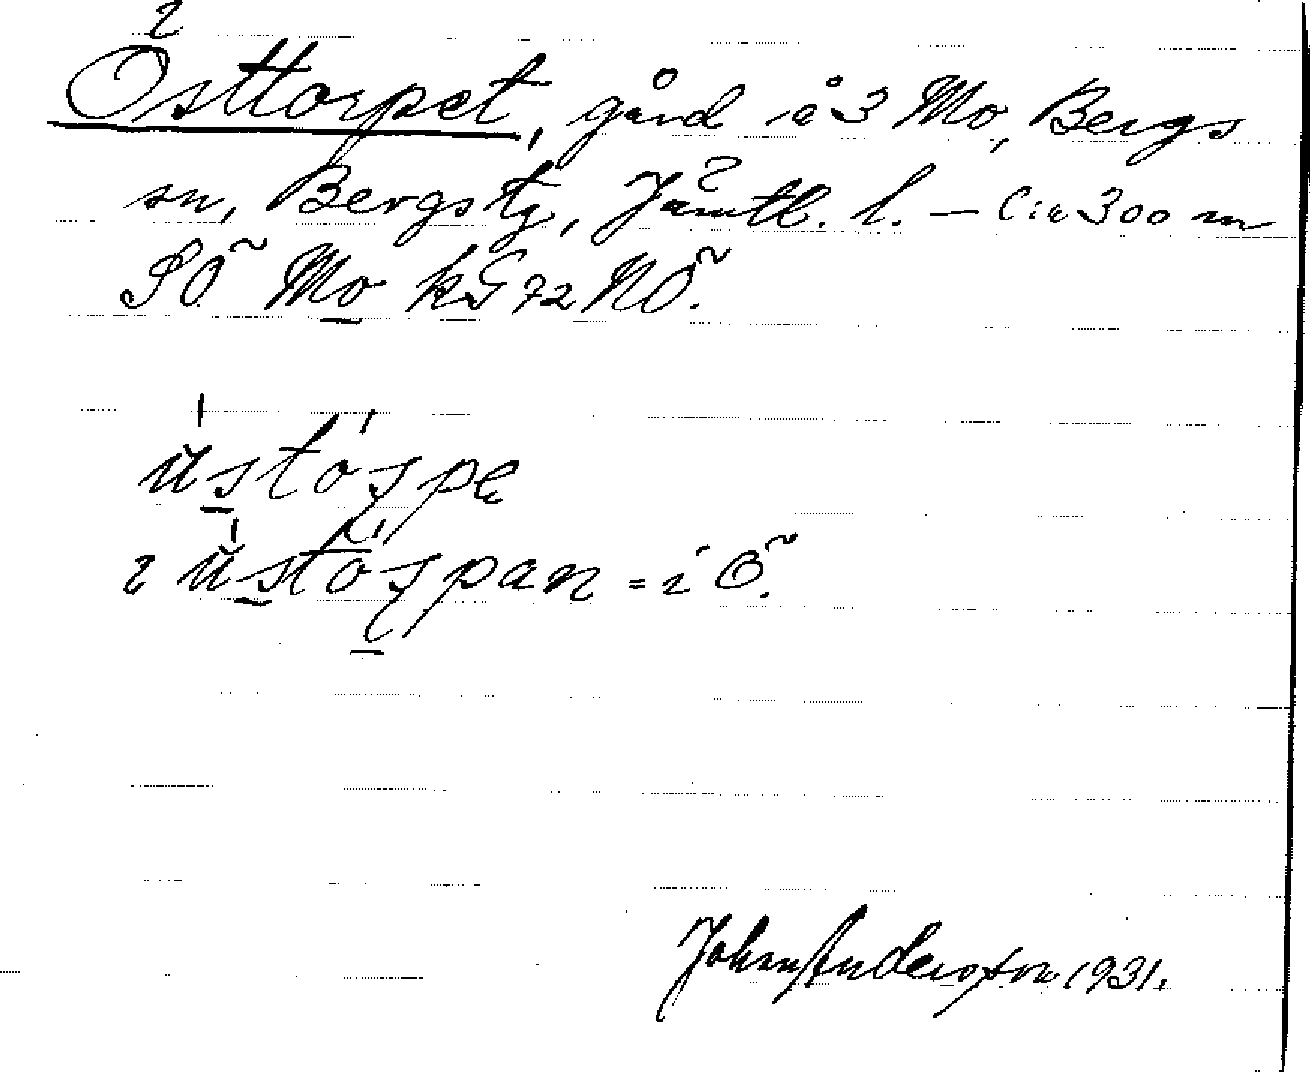 Östtorpet, gård i å 3 Mo, Bergs
sn, Bergs tg, Jämtl. l. – Cia 300 m
SÖ Mo kG 72 NÖ.
ústóspe
i ústóspan = i Ö.
Johan Andersson 1931.